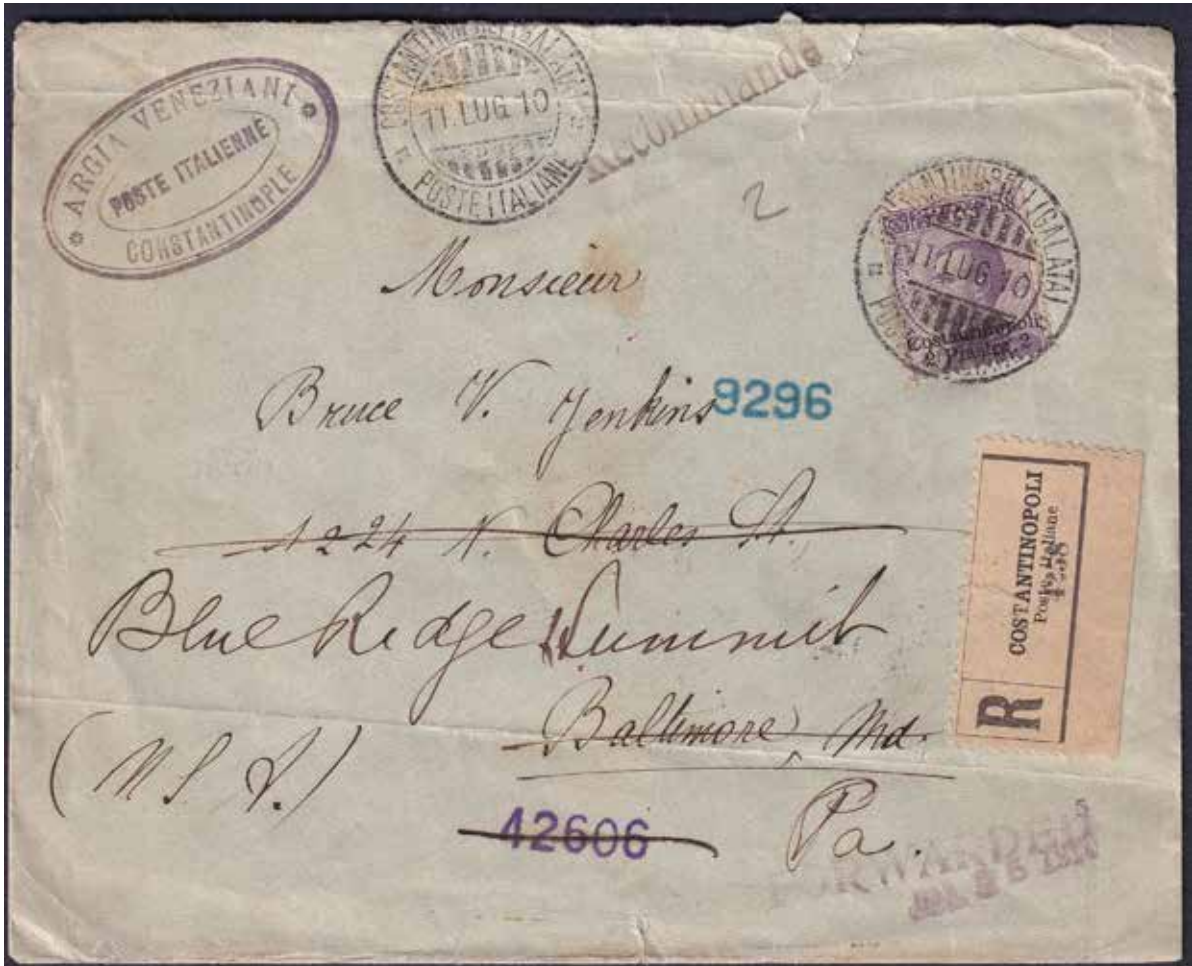 ARGIA VENEZIANI
POSTE ITALIENNE
CONSTANTINOPLE
COSTANTINOPOLI (GALATA)
11.LUG.10
POSTE ITALIANE
Recommandé
2
COSTANTINOPOLI (GALATA)
11.LUG.10
Costantinopoli
2 Piastre 2
Monsieur
Bruce V. Jenkins
9296
1224 N. Charles St.
Blue Ridge Summit
Baltimore, Md.
(U S A.)
Pa.
42606
R
COSTANTINOPOLI
Poste Italiane
FORWARDED
5